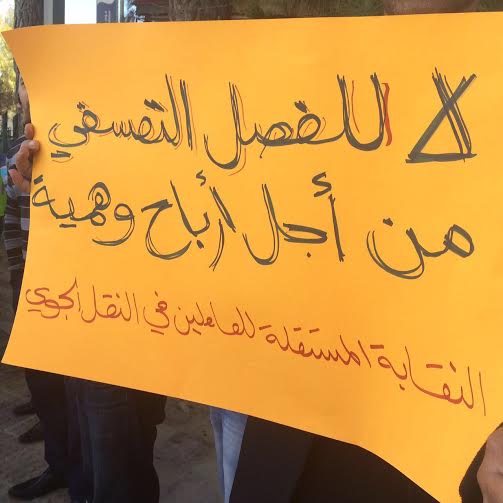 لا للفصل التعسفي
من أجل أرباح وهمية
النقابة المستقلة للعاملين في النقل الجوي